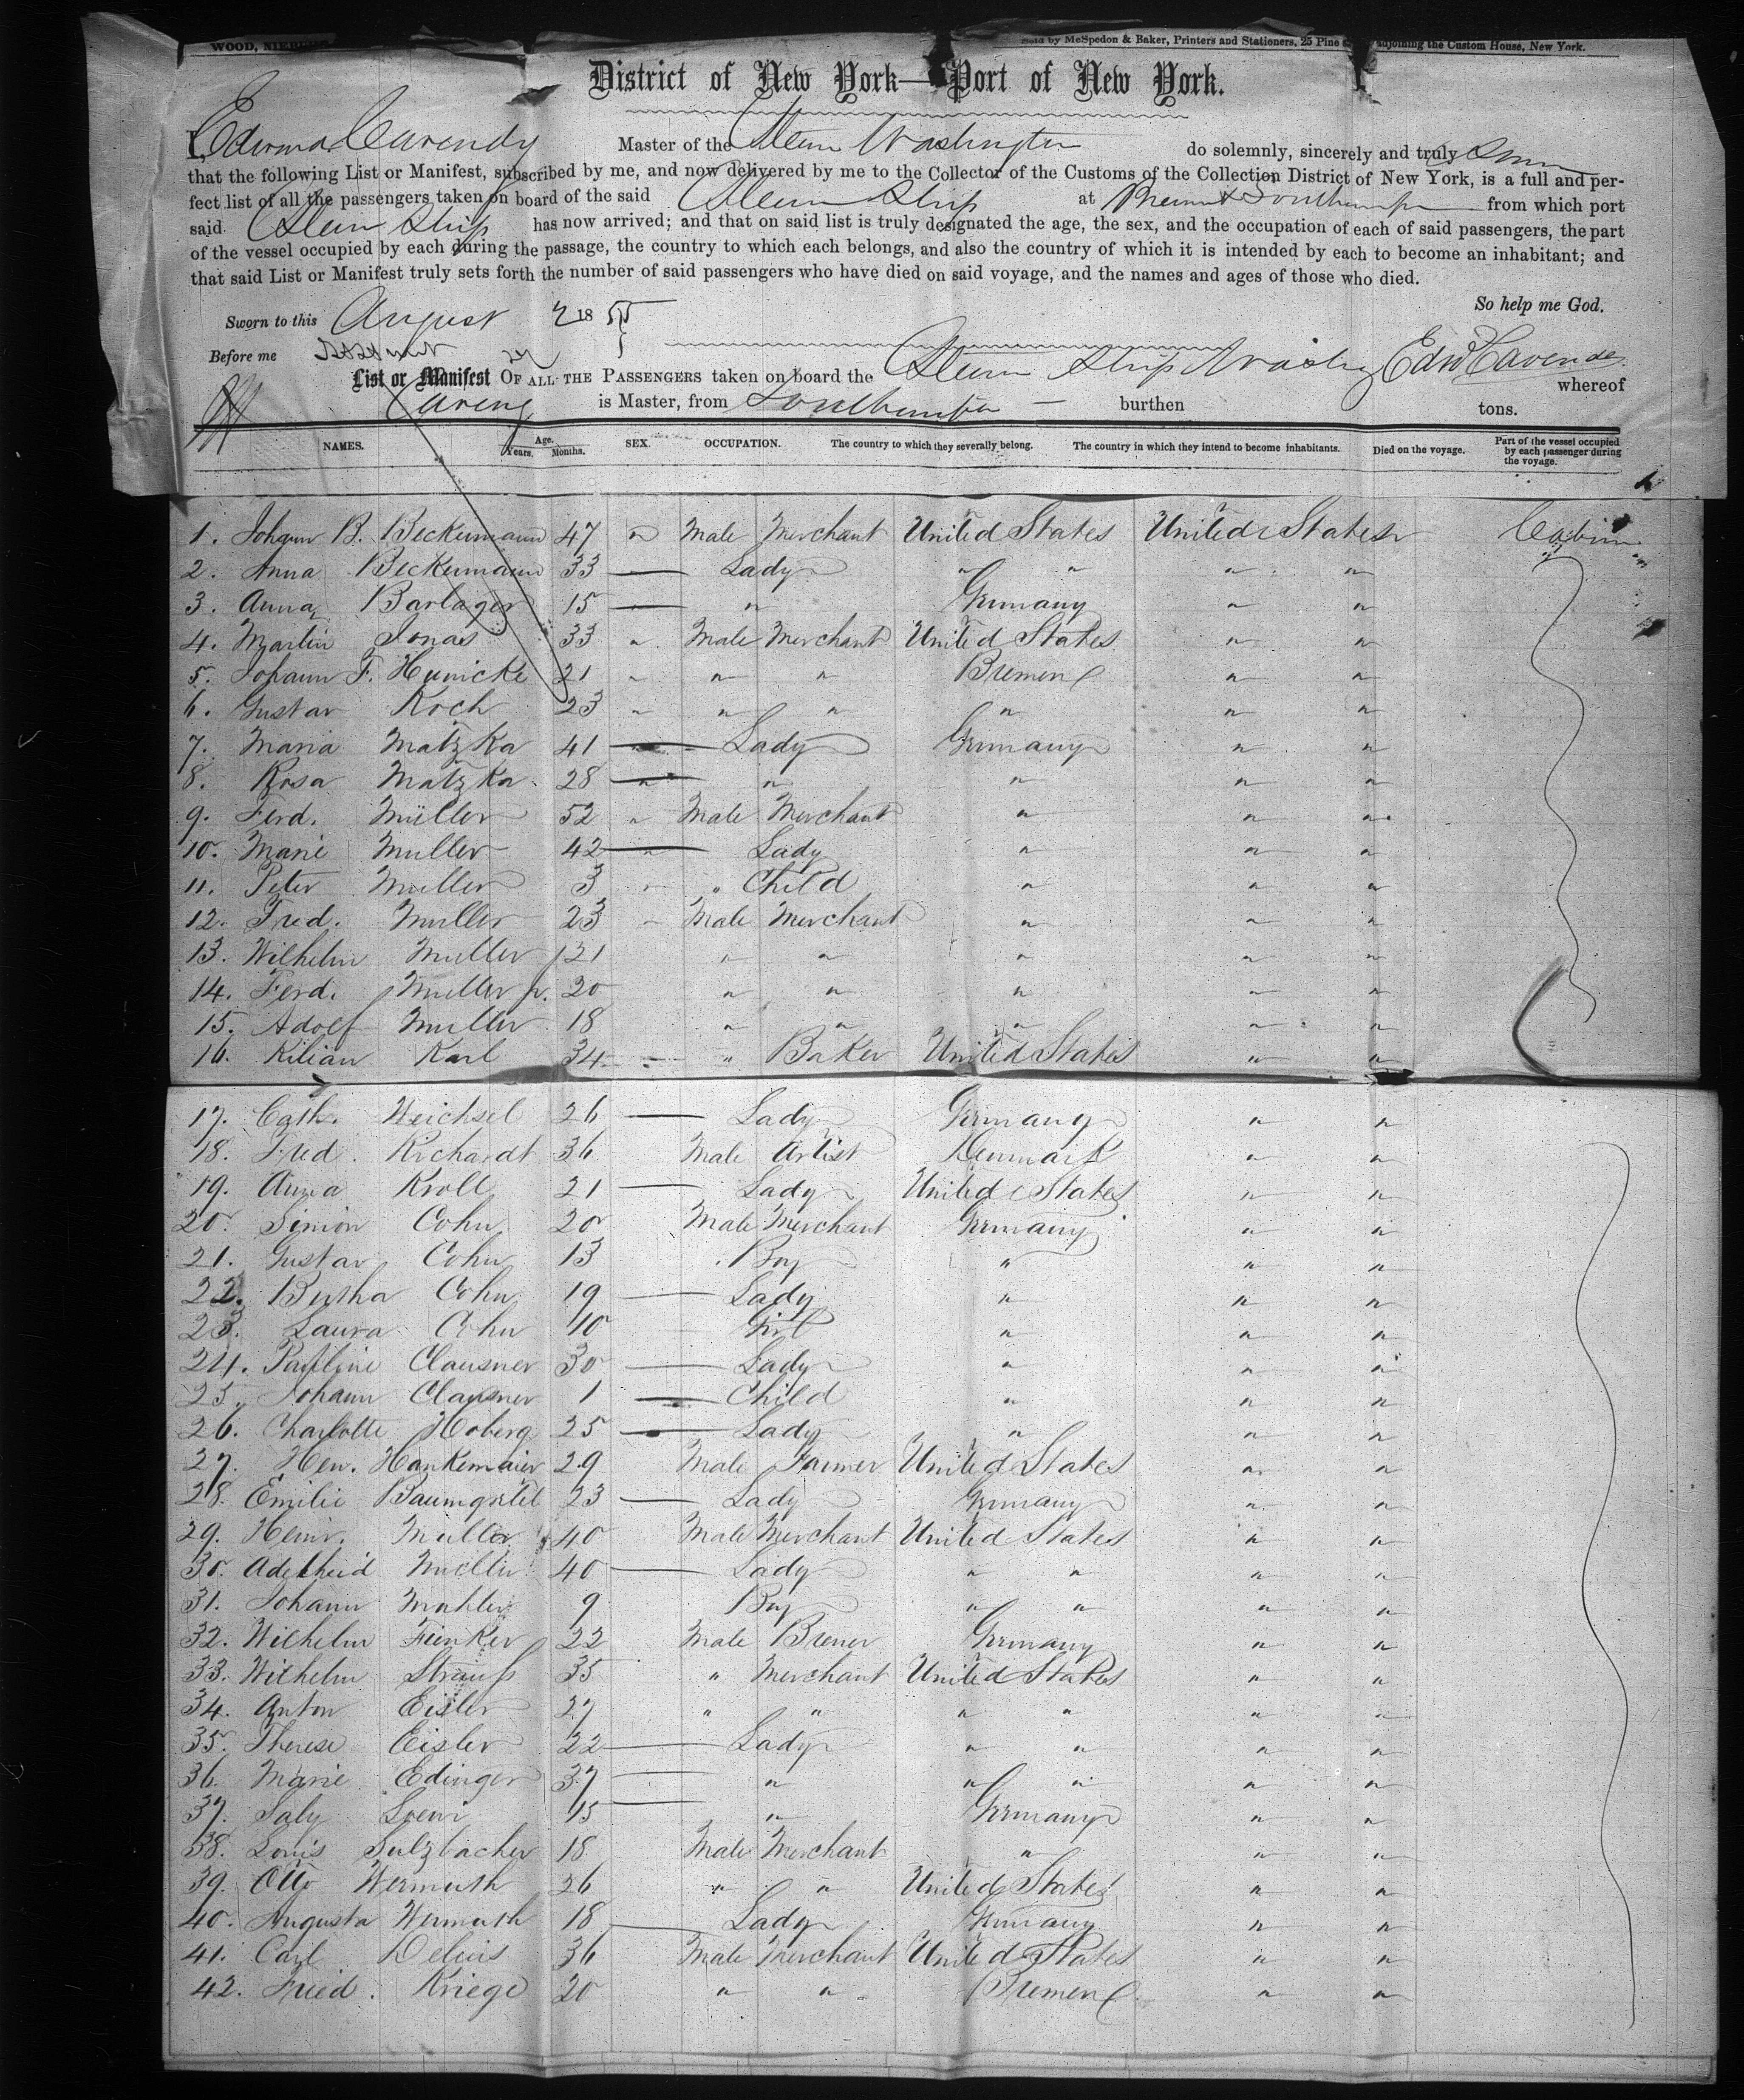 WOOD,
Sold by McSpedon & Baker, Printers and Stationers, 25 Pine adjoining the Custom House, New York.
District of New York—Port of New York.
I, Master of the Steam Washington do solemnly, sincerely and truly
that the following List or Manifest, subscribed by me, and now delivered by me to the Collector of the Customs of the Collection District of New York, is a full and per-
fect list of all the passengers taken on board of the said Steam Ship at Bremen & Southampton from which port
said Steam Ship has now arrived; and that on said list is truly designated the age, the sex, and the occupation of each of said passengers, the part
of the vessel occupied by each during the passage, the country to which each belongs, and also the country of which it is intended by each to become an inhabitant; and
that said List or Manifest truly sets forth the number of said passengers who have died on said voyage, and the names and ages of those who died.
So help me God.
Sworn to this August 2 18 55
Before me
List or Manifest OF ALL THE PASSENGERS taken on board the Steam Ship Washing Edwd Cavendy whereof
is Master, from Southampton — burthen tons.
NAMES. Age. Years. Months. SEX. OCCUPATION. The country to which they severally belong. The country in which they intend to become inhabitants. Died on the voyage. Part of the vessel occupied by each passenger during the voyage.
1. Johann B. Beckermann 47 " Male Merchant United States United States Cabin
2. Anna Beckermann 33 — Lady " " " "
3. Anna Barlager 15 — " Germany " "
4. Martin Jonas 33 " Male Merchant United States " "
5. Johann F. Hunicke 21 " " " Bremen " "
6. Gustav Koch 23 " " " " " "
7. Maria Matzka 41 — Lady Germany " "
8. Rosa Matzka 28 — " " " "
9. Ferd. Müller 52 " Male Merchant " " "
10. Marie Muller 42 — Lady " " "
11. Peter Muller 3 " " Child " " "
12. Fred. Muller 23 " Male Merchant " " "
13. Wilhelm Muller 21 " " " " "
14. Ferd. Muller jr. 20 " " " " "
15. Adolf Muller 18 " " " " "
16. Kilian Karl 34 — " Baker United States " "
17. Cath. Weichsel 26 — Lady Germany " "
18. Fred. Richardt 36 Male Artist Denmark " "
19. Anna Kroll 21 — Lady United States " "
20. Simon Cohn 20 Male Merchant Germany " "
21. Gustav Cohn 13 Boy " " "
22. Bertha Cohn 19 — Lady " " "
23. Laura Cohn 10 — Girl " " "
24. Pauline Clausner 30 — Lady " " "
25. Johann Clausner 1 — Child " " "
26. Charlotte Hoberg 25 — Lady " " "
27. Hen. Hankemaier 29 Male Farmer United States " "
28. Emilie Baumgartel 23 — Lady Germany " "
29. Heinr. Muller 40 Male Merchant United States " "
30. Adelheid Muller 40 — Lady " " " "
31. Johann Mahler 9 Boy " " " "
32. Wilhelm Finker 22 Male Brewer Germany " "
33. Wilhelm Strauß 35 " Merchant United States " "
34. Anton Eisler 27 " " " " " "
35. Therese Eisler 22 — Lady " " " "
36. Marie Edinger 37 — " " " " "
37. Saly Loewi 15 — " Germany " "
38. Louis Sulzbacher 18 Male Merchant " " "
39. Otto Wermuth 26 " " United States " "
40. Augusta Wermuth 18 — Lady Germany " "
41. Carl Delius 36 Male Merchant United States " "
42. Fried. Kriege 20 " " Bremen " "